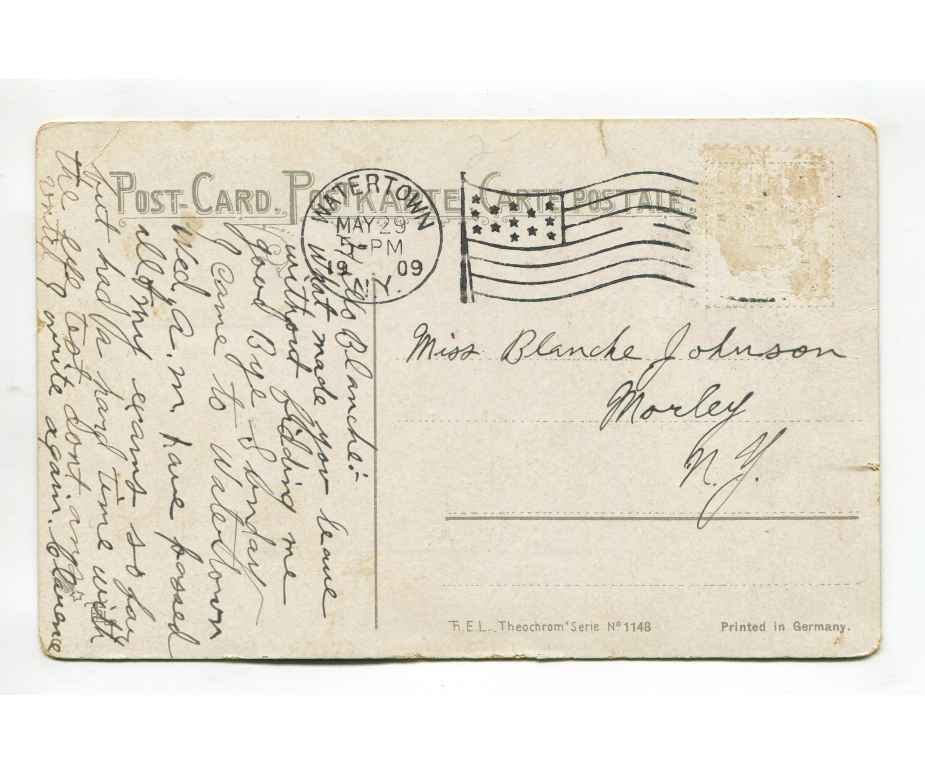 POST-CARD. POSTKARTE CARTE POSTALE.
WATERTOWN
MAY 29
5-PM
19 09
N.Y.
Miss Blanche Johnson
Morley
N.Y.
Blanche:
What made you leave
without bidding me
good Bye Sunday
I came to Watertown
Wed, a.m. have passed
all of my exams so far
but had a hard time with
the
until write again. Clarence
T.E.L. „Theochrom" Serie Nº 1148
Printed in Germany.